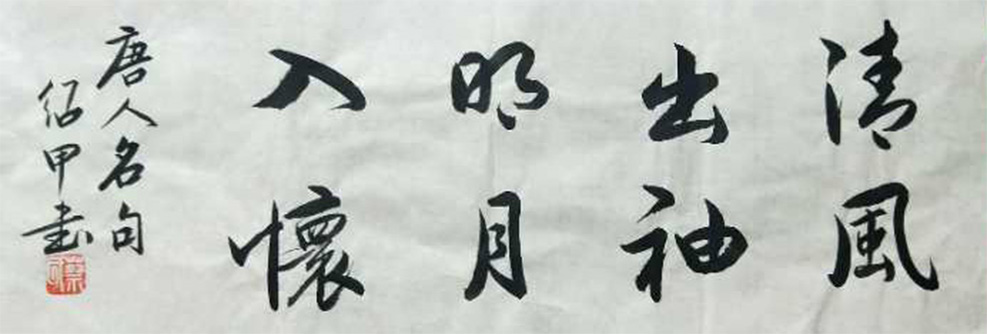 清風
出袖
明月
入懷
唐人名句
紹甲書